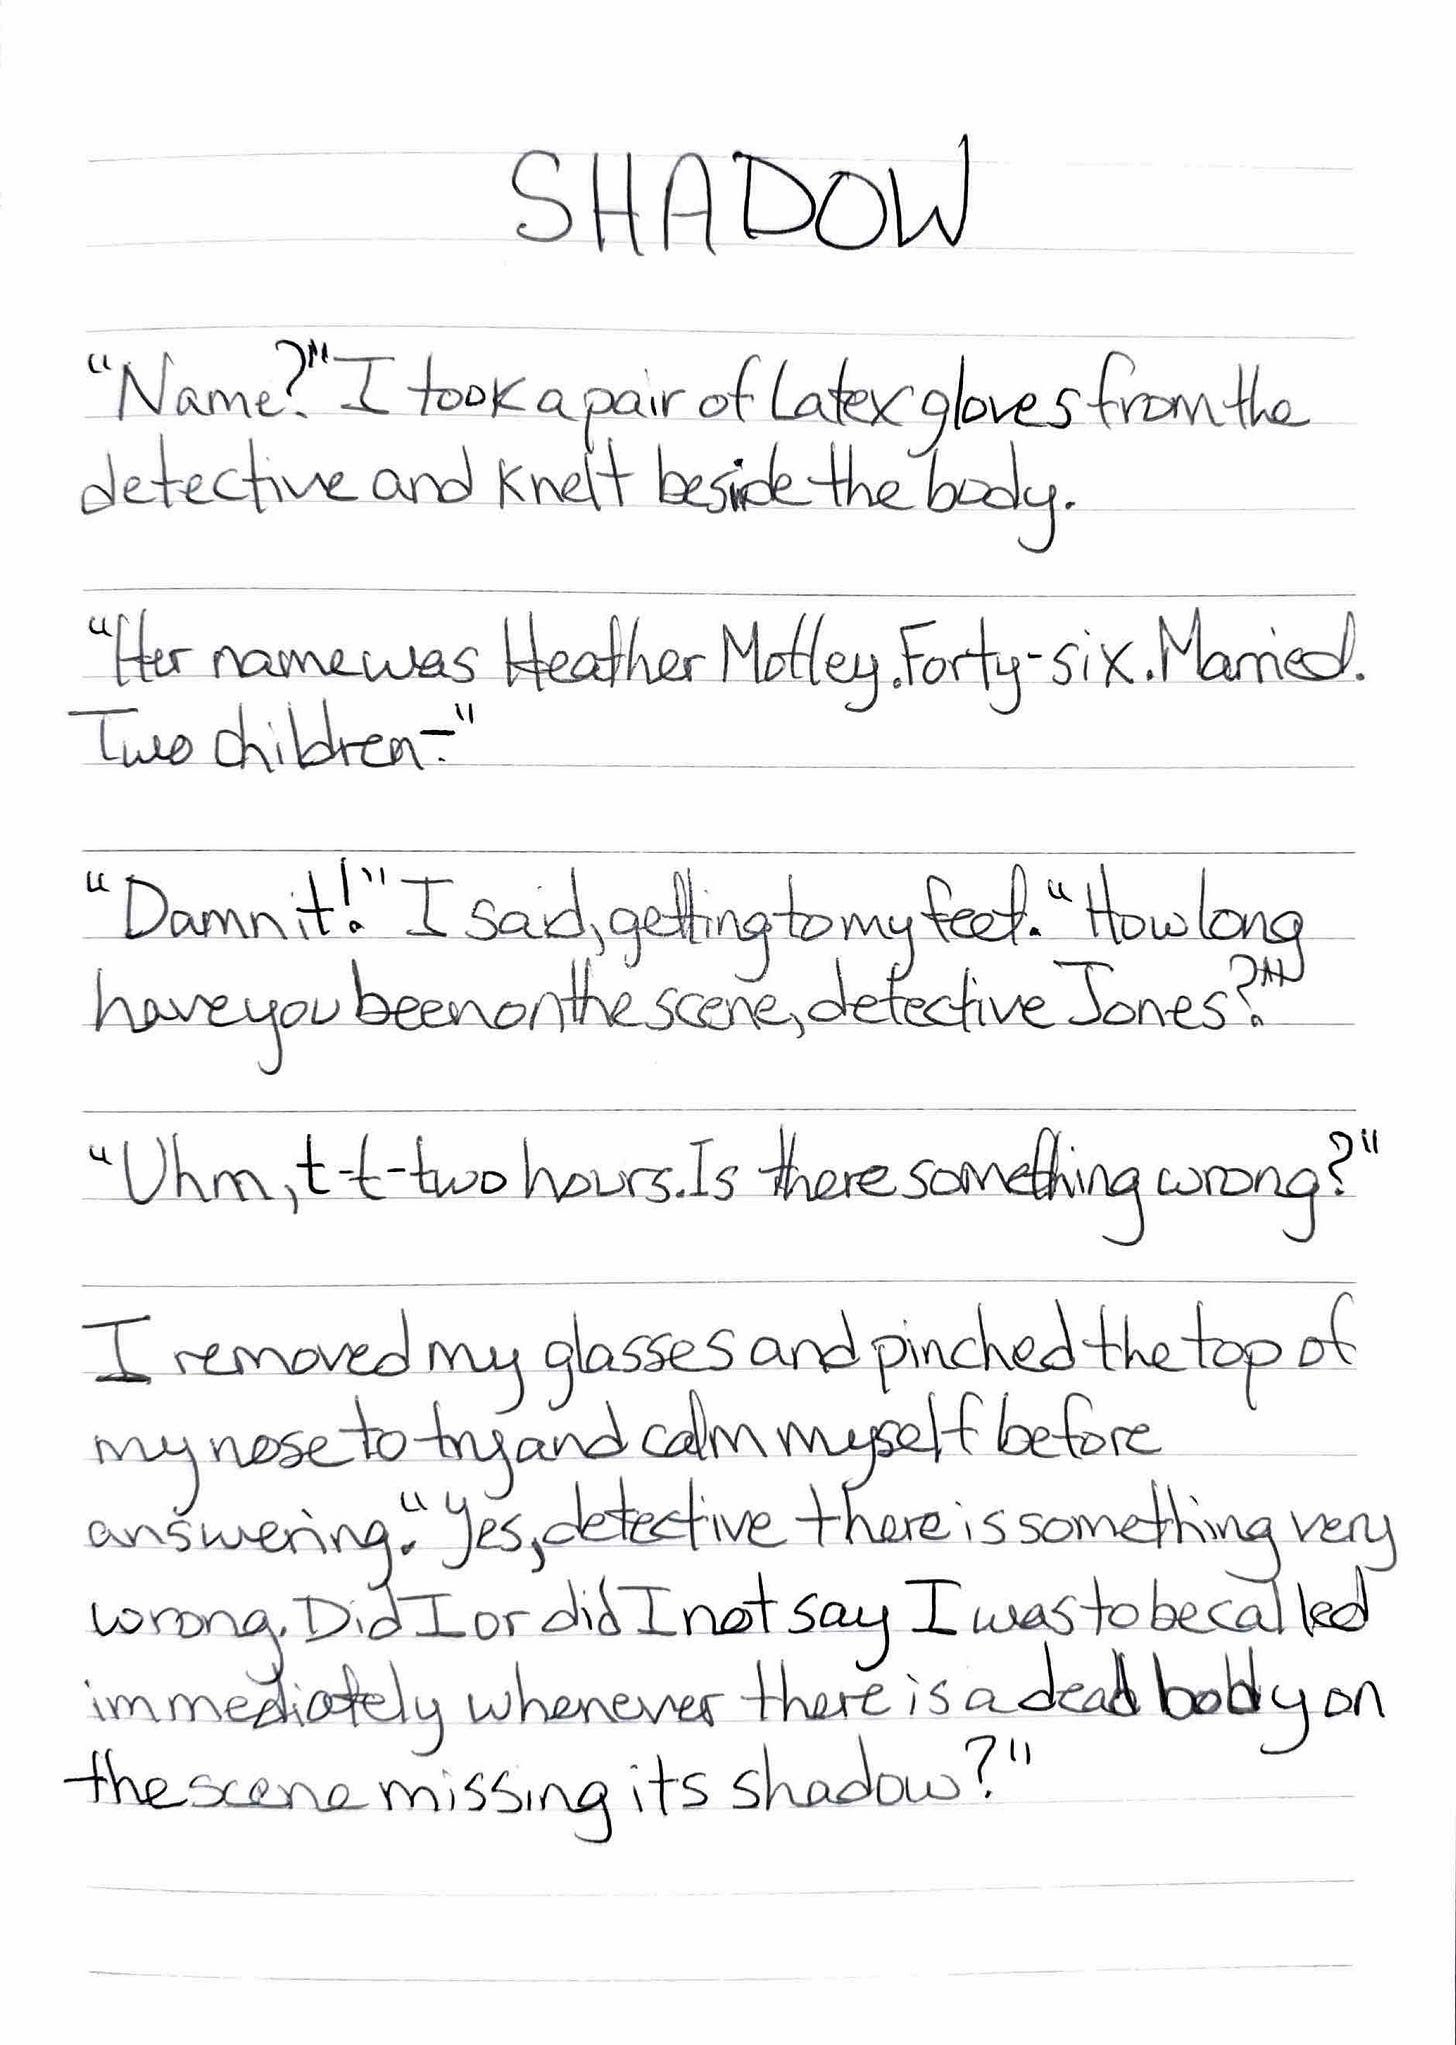 SHADOW
"Name?" I took a pair of latex gloves from the
detective and knelt beside the body.
"Her name was Heather Motley. Forty-six. Married.
Two children-"
"Damn it!" I said, getting to my feet. "How long
have you been on the scene, detective Jones?"
"Uhm, t-t-two hours. Is there something wrong?"
I removed my glasses and pinched the top of
my nose to try and calm myself before
answering. "Yes, detective there is something very
wrong. Did I or did I not say I was to be called
immediately whenever there is a dead body on
the scene missing its shadow?"